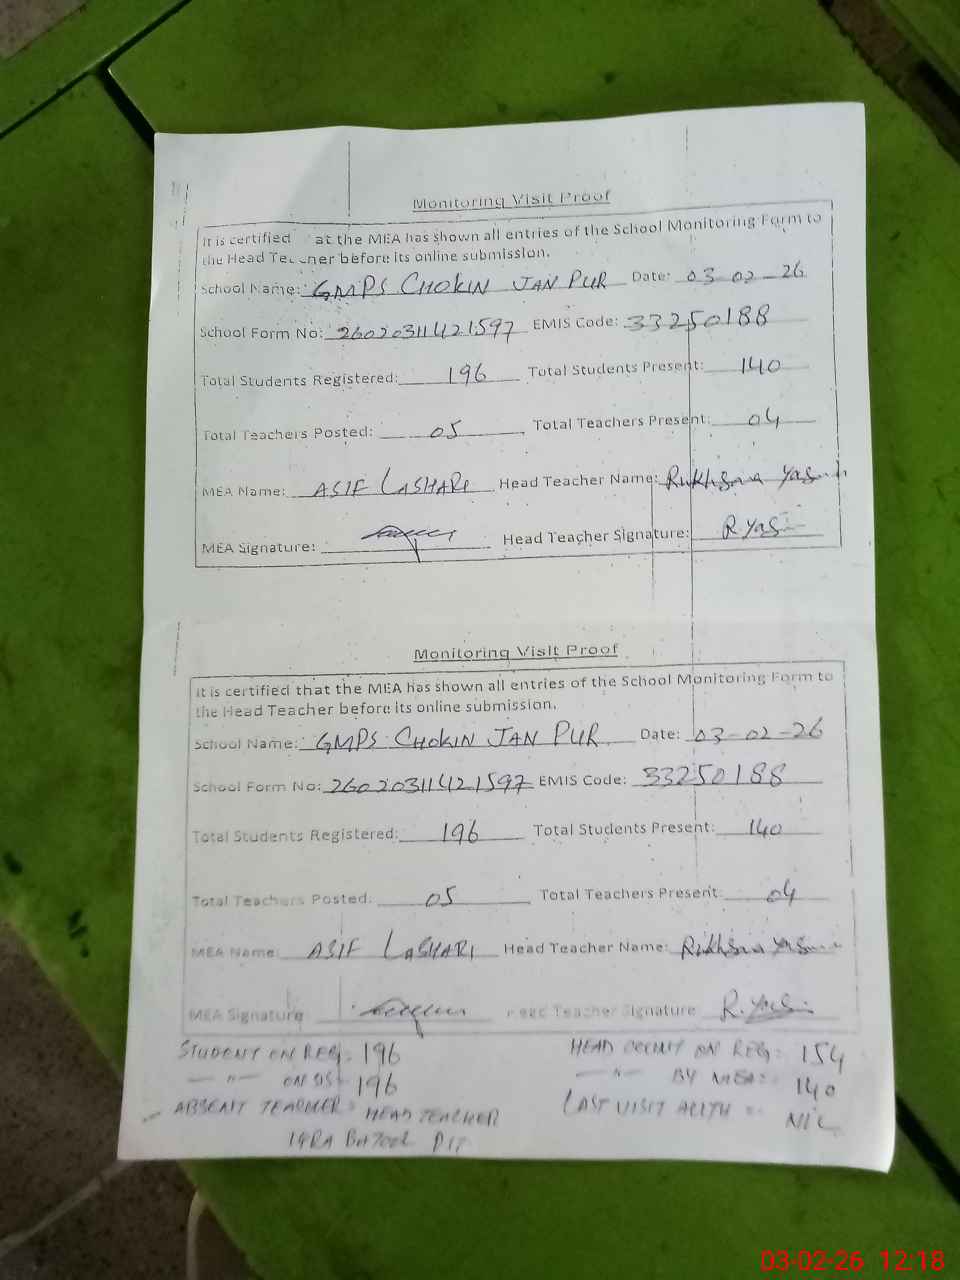 Monitoring Visit Proof
It is certified at the MEA has shown all entries of the School Monitoring Form to
the Head Teacher before its online submission.
School Name: GMPS CHOKIN JAN PUR Date: 03-02-26
School Form No: 26020311421597 EMIS Code: 33250188
Total Students Registered: 196 Total Students Present: 140
Total Teachers Posted: 05 Total Teachers Present: 04
MEA Name: ASIF LASHARI Head Teacher Name: Rukhsana Yasmin
MEA Signature: Head Teacher Signature: R.Yas
Monitoring Visit Proof
It is certified that the MEA has shown all entries of the School Monitoring Form to
the Head Teacher before its online submission.
School Name: GMPS CHOKIN JAN PUR Date: 03-02-26
School Form No: 26020311421597 EMIS Code: 33250188
Total Students Registered: 196 Total Students Present: 140
Total Teachers Posted: 05 Total Teachers Present: 04
MEA Name: ASIF LASHARI Head Teacher Name: Rukhsana Yasmin
MEA Signature Head Teacher Signature R.Yas
STUDENT ON REG: 196 HEAD COUNT ON REG: 154
— " — ON DS: 196 — " — BY MEA: 140
ABSENT TEACHER: HEAD TEACHER LAST VISIT NIL
IQRA BATOOL
03-02-26 12:18